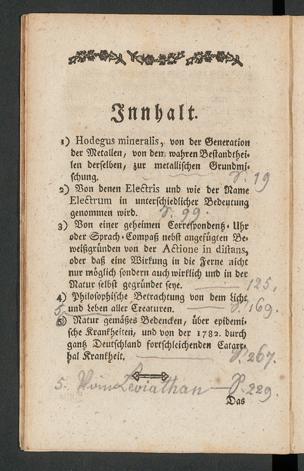 Innhalt.
1) Hodegus mineralis, von der Generation
der Metallen, von dem wahren Bestandthei-
len derselben, zur metallischen Grundmi-
schung. S. 19
2) Von denen Electris und wie der Name
Electrum in unterschiedlicher Bedeutung
genommen wird. S. 99.
3) Von einer geheimen Correspondenz-Uhr
oder Sprach-Compaß nebst angefügten Be-
weißgründen von der Actione in distans,
oder daß eine Wirkung in die Ferne nicht
nur möglich sondern auch wirklich und in der
Natur selbst gegründet seye. 125.
4) Philosophische Betrachtung von dem Licht
und Leben aller Creaturen. S. 169.
5) Natur gemäßes Bedencken, über epidemi-
sche Krankheiten, und von der 1782. durch
gantz Deutschland fortschleichenden Catarr-
hal Krankheit. S. 267.
5. Vom Leviathan S. 229.
Das